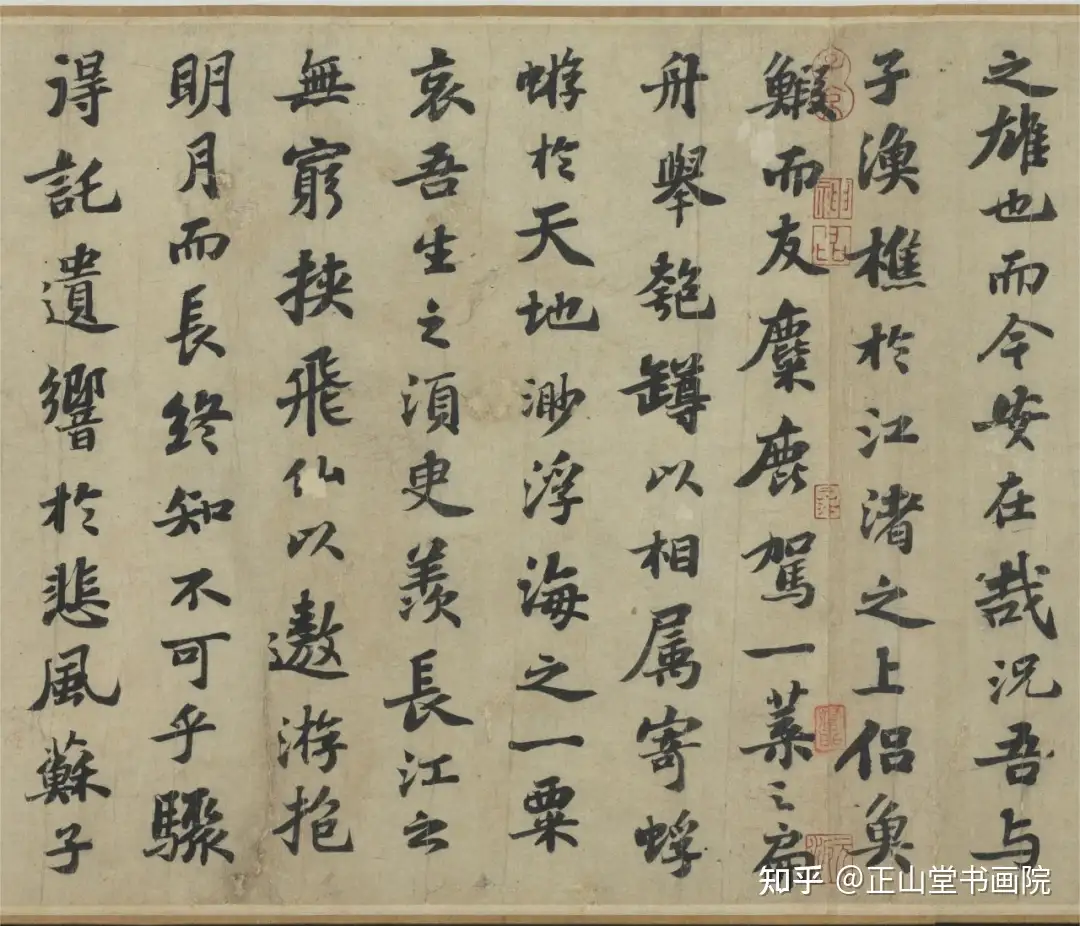 之雄也而今安在哉況吾与
子漁樵於江渚之上侶魚
鰕而友麋鹿駕一葉之扁
舟舉匏罇以相属寄蜉
蝣於天地渺浮海之一粟
哀吾生之須臾羨長江之
無窮挾飛仙以遨游抱
明月而長終知不可乎驟
得託遺響於悲風蘇子
知乎 @正山堂书画院